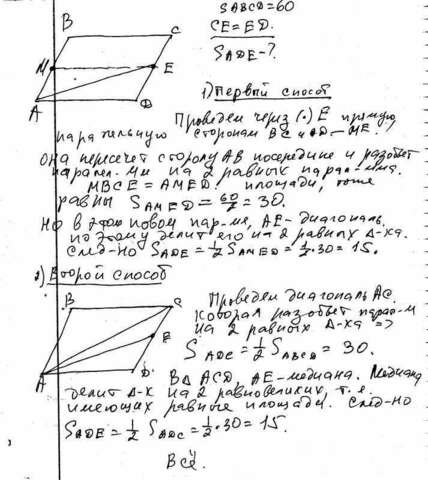 S ABCD = 60
CE = ED.
S ADE - ?
B
C
M
E
A
D
1) Первый способ
Проведем через (.) E прямую
параллельную сторонам BC и AD - ME.
Она пересечет сторону AB посередине и разобьет
парал-м на 2 равных парал-мма.
MBCE = AMED. площади, тоже
равны S AMED = 60/2 = 30.
Но в этом новом пар-ме, AE - диагональ,
поэтому делит его на 2 равных Δ-ка.
След-но S ADE = 1/2 S AMED = 1/2 · 30 = 15.
2) Второй способ
B
C
E
A
D
Проведем диагональ AC.
которая разобьет парал-м
на 2 равных Δ-ка =>
S ADC = 1/2 S ABCD = 30.
В Δ ACD, AE - медиана. Медиана
делит Δ-к на 2 равновеликих, т.е.
имеющих равные площади. След-но
S ADE = 1/2 S ADC = 1/2 · 30 = 15.
Всё.